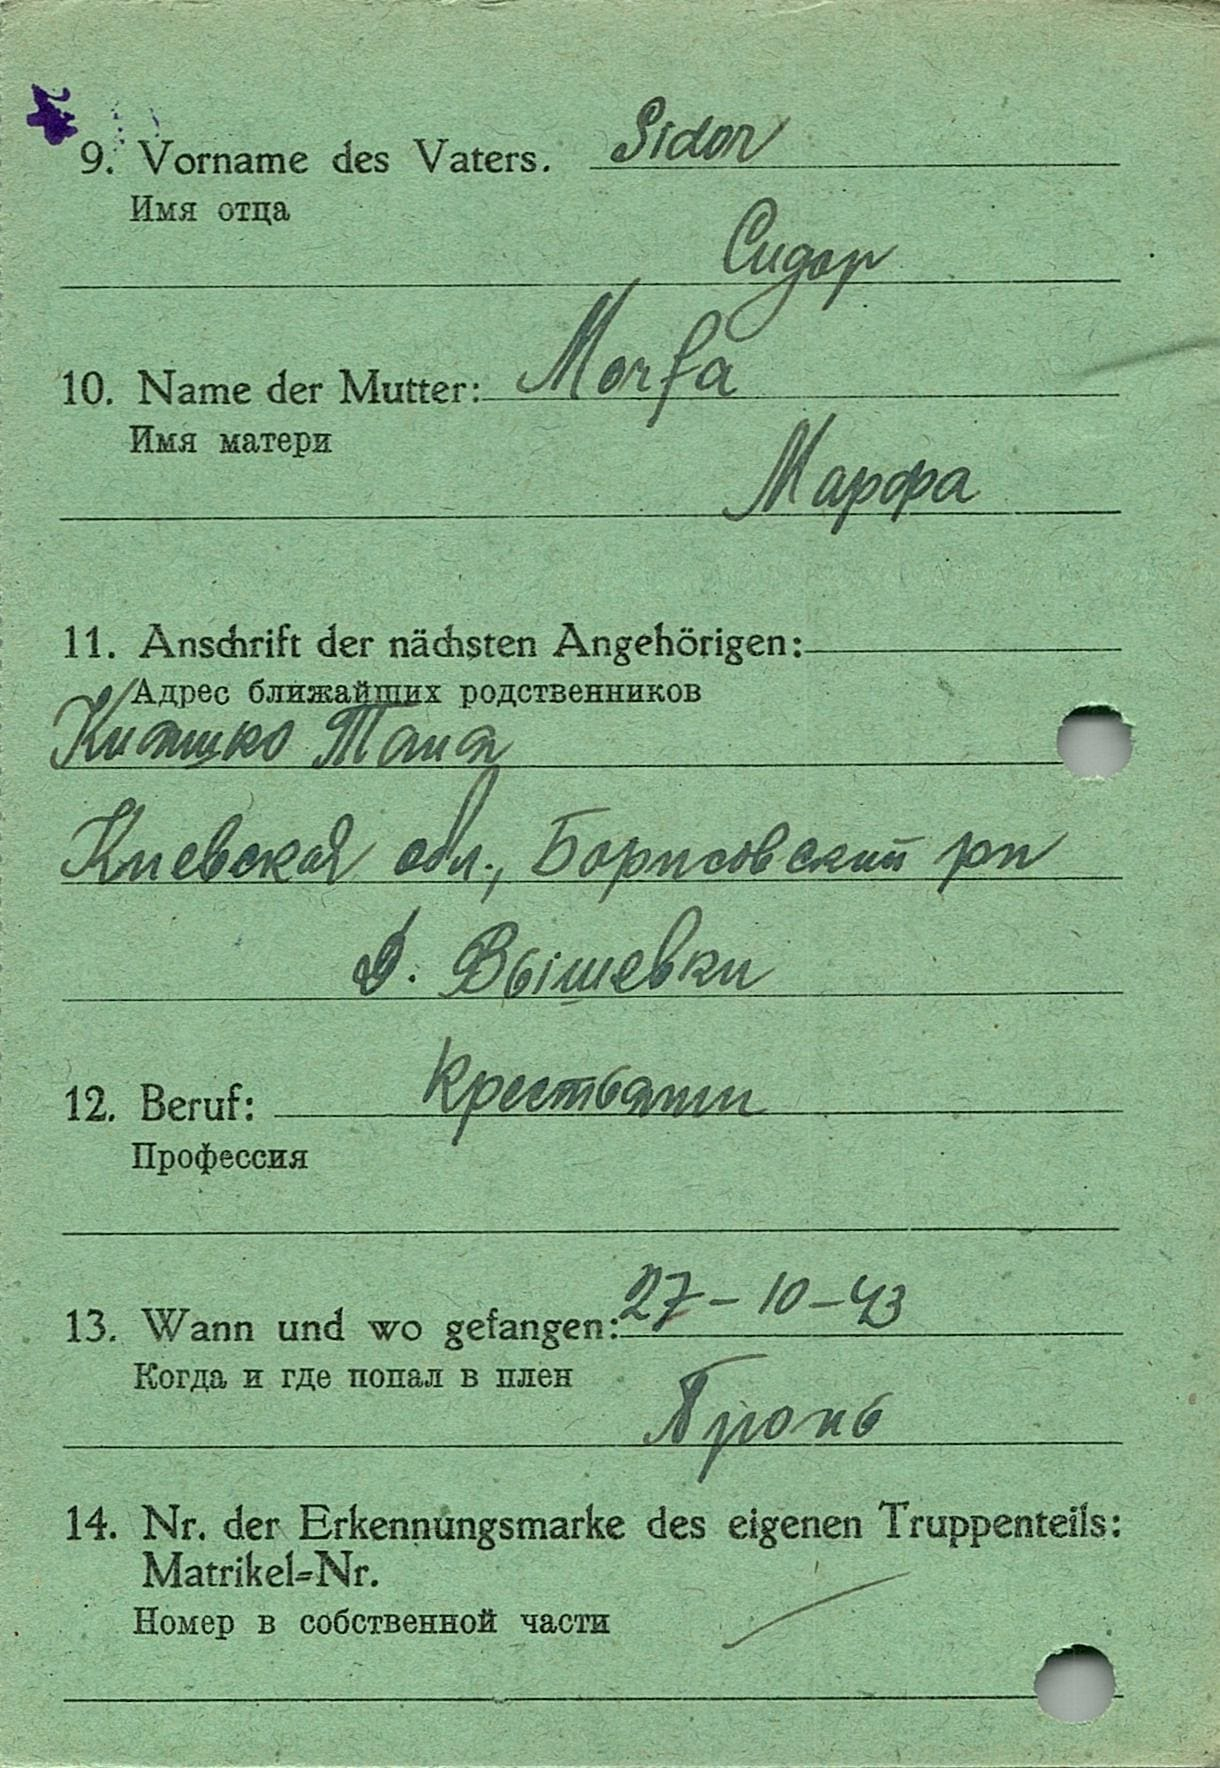 9. Vorname des Vaters. Sidor
Имя отца
Сидор
10. Name der Mutter: Morfa
Имя матери
Марфа
11. Anschrift der nächsten Angehörigen:
Адрес ближайших родственников
Киевская обл., Борисовский рн
Д. Вышевки
12. Beruf: Крестьянин
Профессия
13. Wann und wo gefangen: 27-10-43
Когда и где попал в плен
14. Nr. der Erkennungsmarke des eigenen Truppenteils:
Matrikel-Nr.
Номер в собственной части